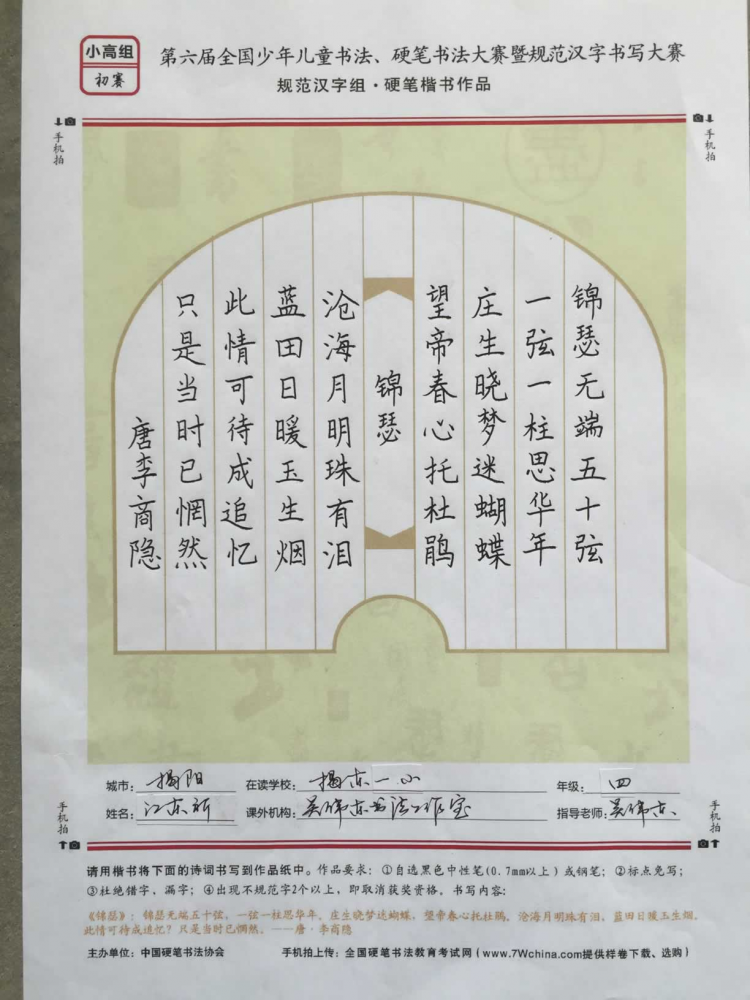 小高组
初赛
第六届全国少年儿童书法、硬笔书法大赛暨规范汉字书写大赛
规范汉字组·硬笔楷书作品
手机拍
手机拍
锦瑟无端五十弦
一弦一柱思华年
庄生晓梦迷蝴蝶
望帝春心托杜鹃
锦瑟
沧海月明珠有泪
蓝田日暖玉生烟
此情可待成追忆
只是当时已惘然
唐李商隐
城市：揭阳 在读学校：揭东一小 年级：四
姓名：江东 课外机构：吴伟东书法工作室 指导老师：吴伟东
手机拍
手机拍
请用楷书将下面的诗词书写到作品纸中。作品要求：①自选黑色中性笔(0.7mm以上)或钢笔；②标点免写；
③杜绝错字、漏字；④出现不规范字2个以上，即取消获奖资格。书写内容：
《锦瑟》：锦瑟无端五十弦，一弦一柱思华年。庄生晓梦迷蝴蝶，望帝春心托杜鹃。沧海月明珠有泪，蓝田日暖玉生烟。
此情可待成追忆？只是当时已惘然。——唐·李商隐
主办单位：中国硬笔书法协会 手机拍上传：全国硬笔书法教育考试网（www.7Wchina.com提供样卷下载、选购）